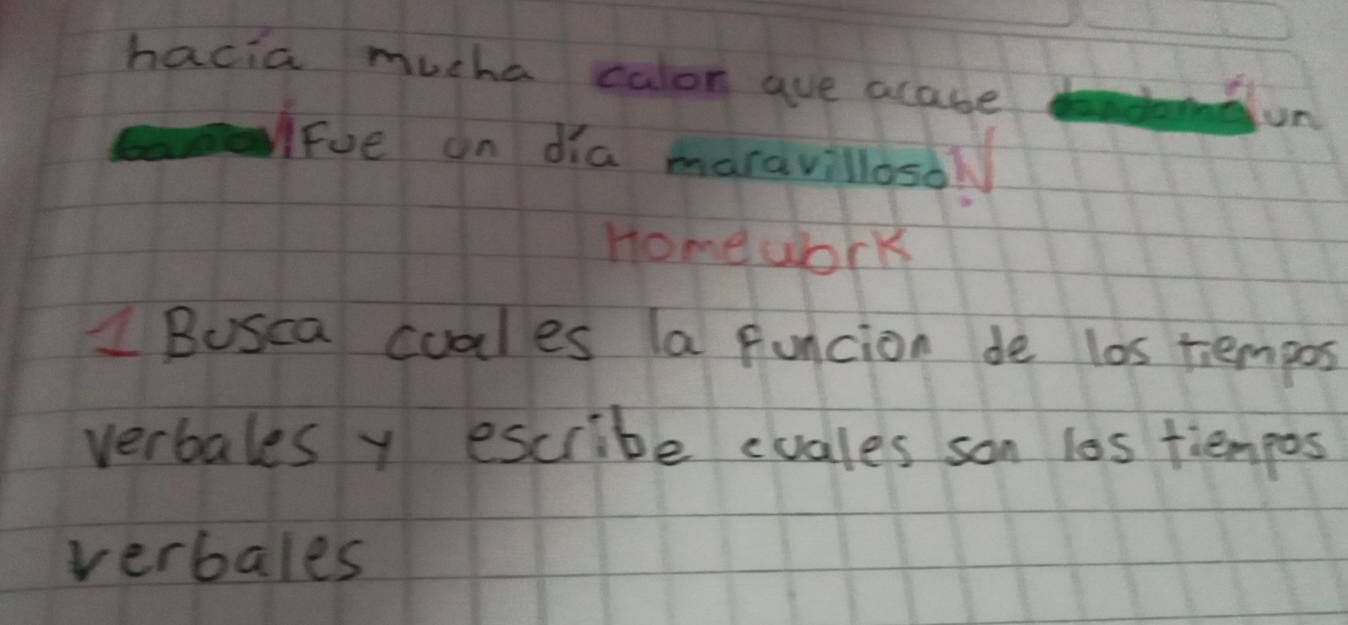 hacía mucha calor que acabe dandome un
baño ¡Fue un día maravilloso!
Homework
1 Busca cual es la funcion de los tiempos
verbales y escribe cuales son los tiempos
verbales